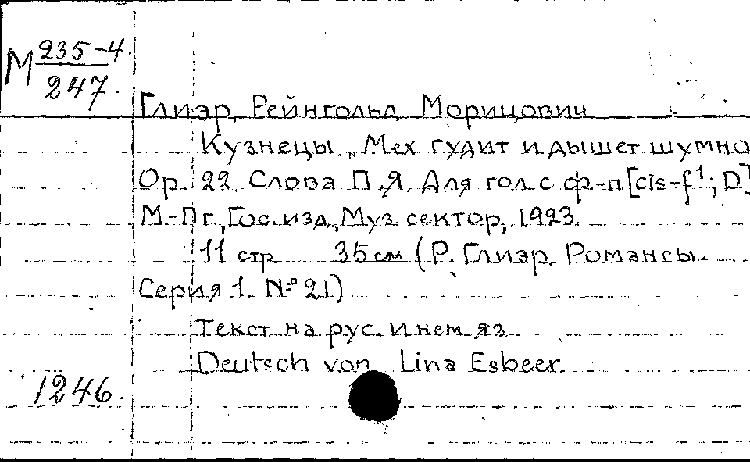 М 235-4
247.
Глиэр, Рейнгольд Морицович
Кузнецы „Мех гудит и дышет шумно
Ор. 22 Слова П.Я. Для гол. с ф-п [cis-f¹; D]
М.-Пг, Гос. изд, Муз сектор, 1923.
11 стр 35 см (Р. Глиэр. Романсы.
Серия 1. № 21)
Текст на рус. и нем яз
Deutsch von Lina Esbeer.
1246.